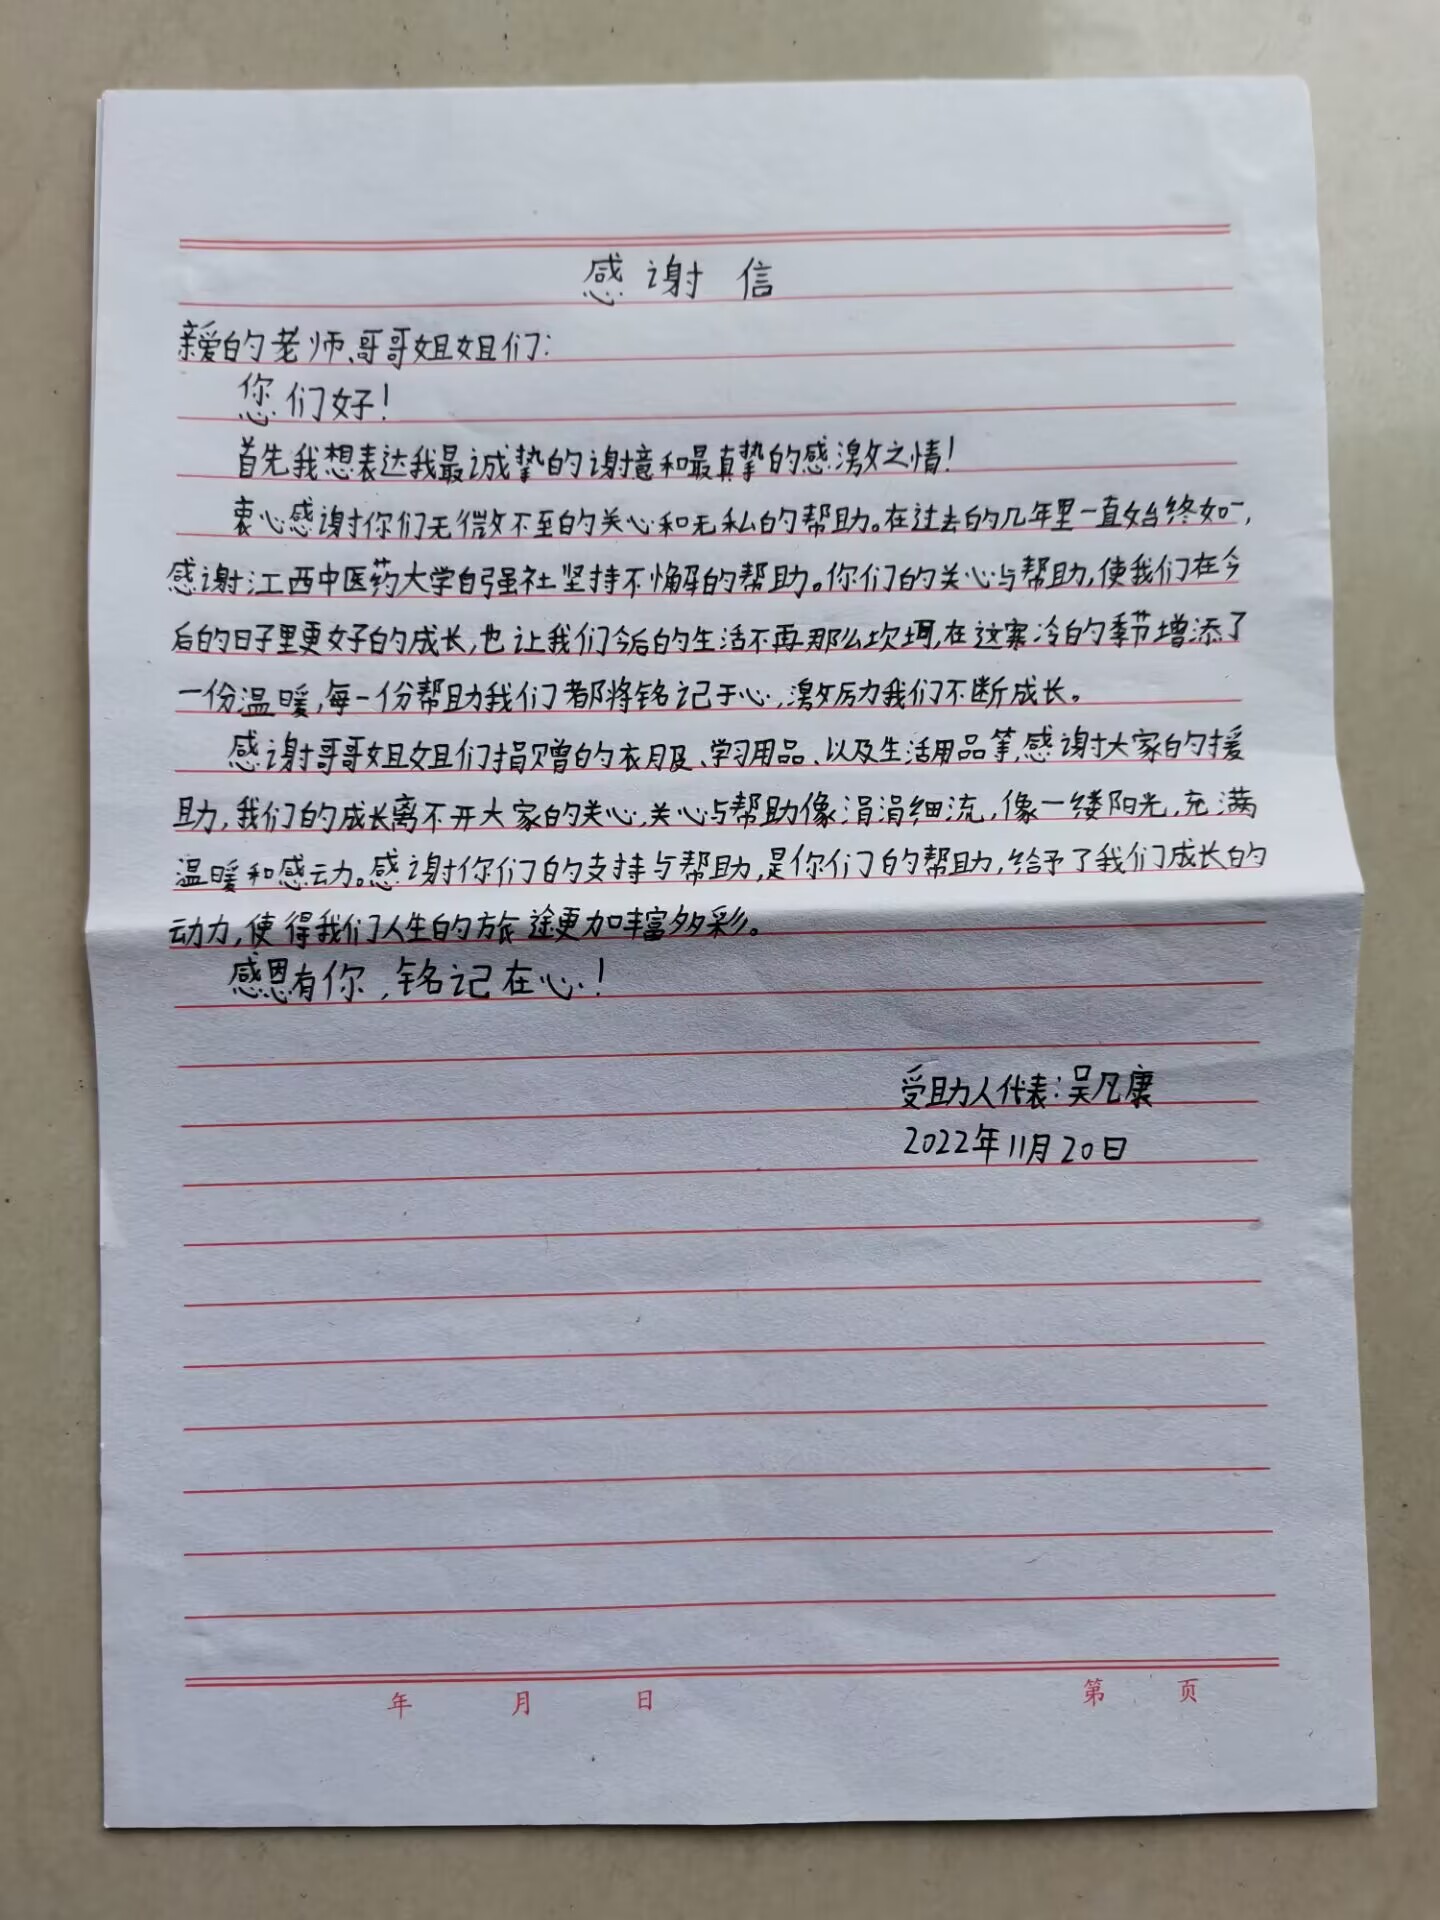 感谢信
亲爱的老师、哥哥姐姐们:
您们好!
首先我想表达我最诚挚的谢意和最真挚的感激之情!
衷心感谢你们无微不至的关心和无私的帮助。在过去的几年里一直始终如一,
感谢江西中医药大学自强社坚持不懈的帮助。你们的关心与帮助,使我们在今
后的日子里更好的成长,也让我们今后的生活不再那么坎坷,在这寒冷的季节增添了
一份温暖,每一份帮助我们都将铭记于心,激励我们不断成长。
感谢哥哥姐姐们捐赠的衣服、学习用品、以及生活用品等,感谢大家的援
助,我们的成长离不开大家的关心,关心与帮助像涓涓细流,像一缕阳光,充满
温暖和感动。感谢你们的支持与帮助,是你们的帮助,给予了我们成长的
动力,使得我们人生的旅途更加丰富多彩。
感恩有你,铭记在心!
受助人代表:吴凡康
2022年11月20日
年 月 日 第 页